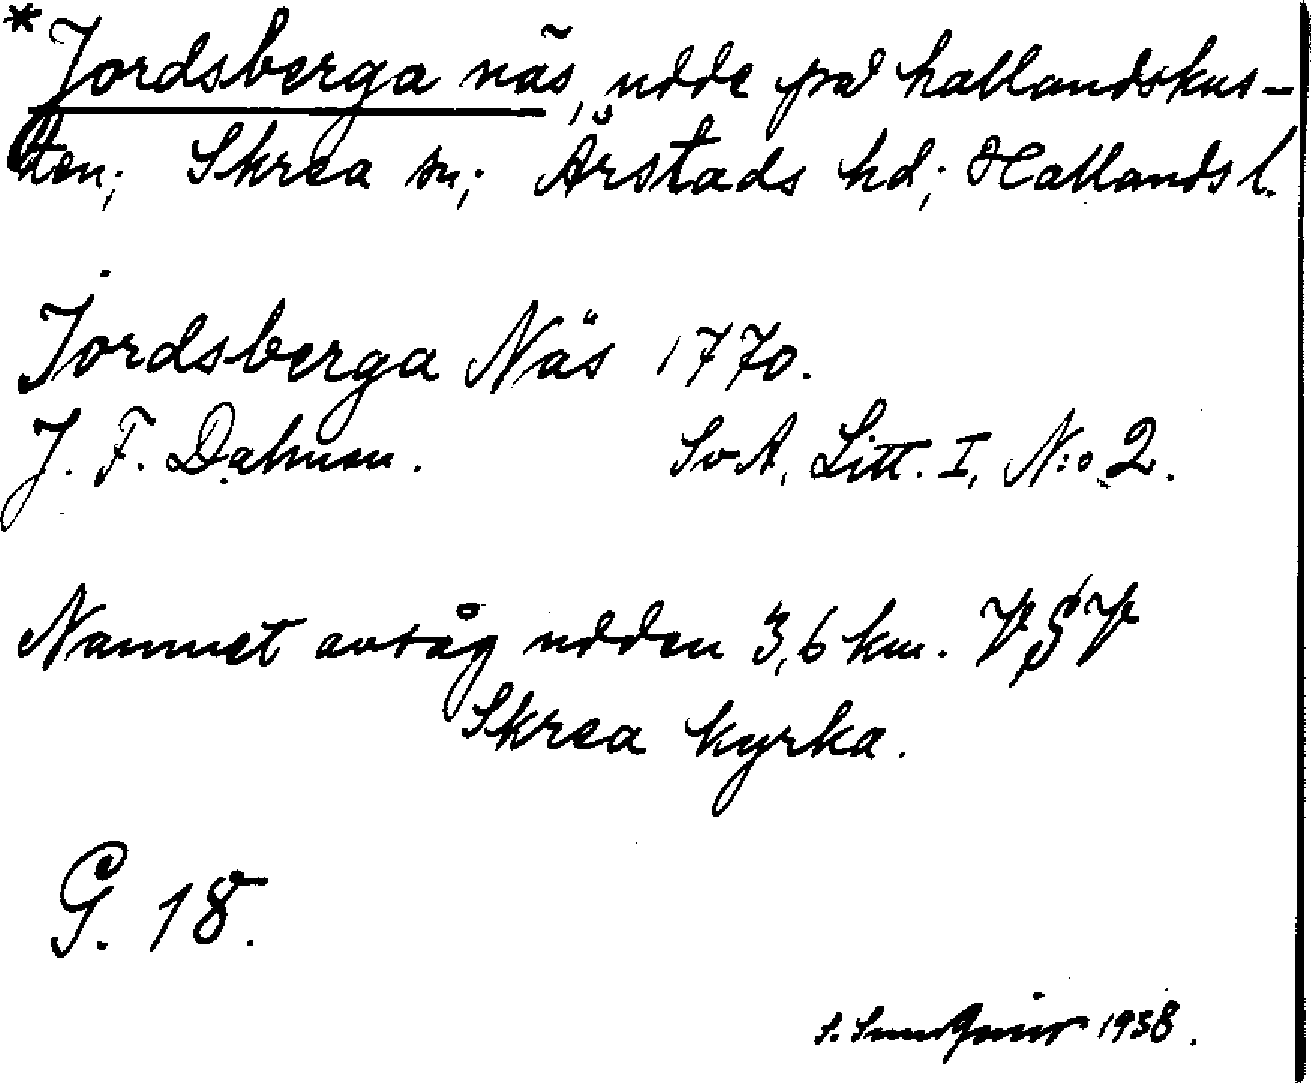 *Jordsberga näs, udde på hallandskus-
ten; Skrea sn; Årstads hd; Hallands l.
Jordsberga Näs 1770.
J. F. Dahman. SvA, Litt. I, N:o 2.
Namnet avsåg udden 3,6 km. V§V
Skrea kyrka.
G. 18.
1938.